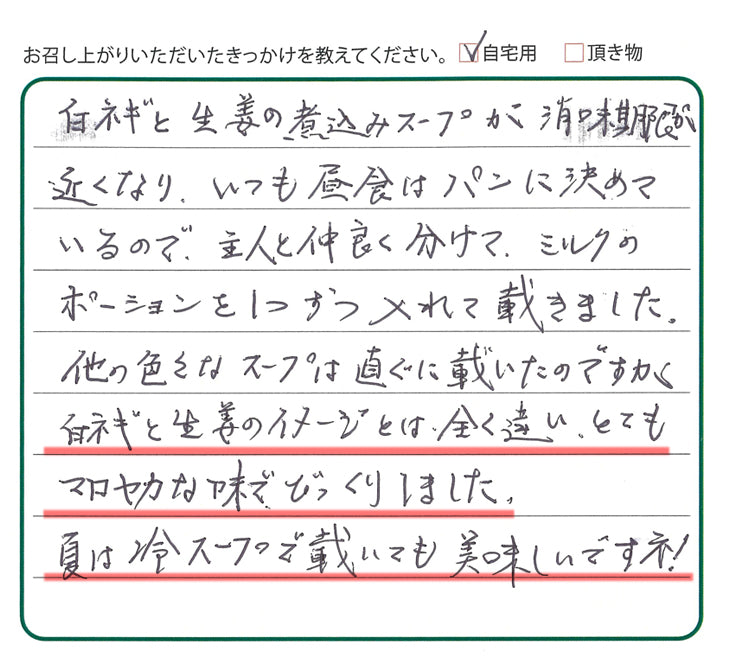 お召し上がりいただいたきっかけを教えてください。 ☑自宅用 □頂き物
白ネギと生姜の煮込みスープが消味期限が
近くなり、いつも昼食はパンに決めて
いるので、主人と仲良く分けて、ミルクの
ポーションを1つずつ入れて載きました。
他の色々なスープは直ぐに載いたのですが
白ネギと生姜のイメージとは、全く違い、とても
マロヤカな味でびっくりしました。
夏は冷スープで載いても美味しいですネ!